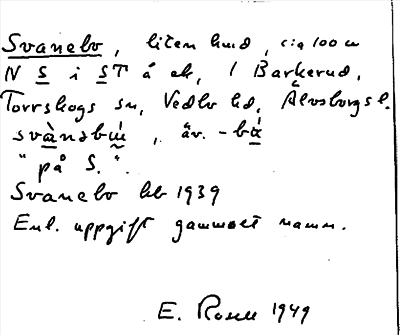 Svanebo, liten hmd, c:a 100 m
N S i ST å ek, / Barkerud,
Torrskogs sn, Vedbo hd, Älvsborgs l.
svànəbù, äv. -bå̀
"på S.".
Svanebo hb 1939
Enl. uppgift gammalt namn.
E. Rosell 1949